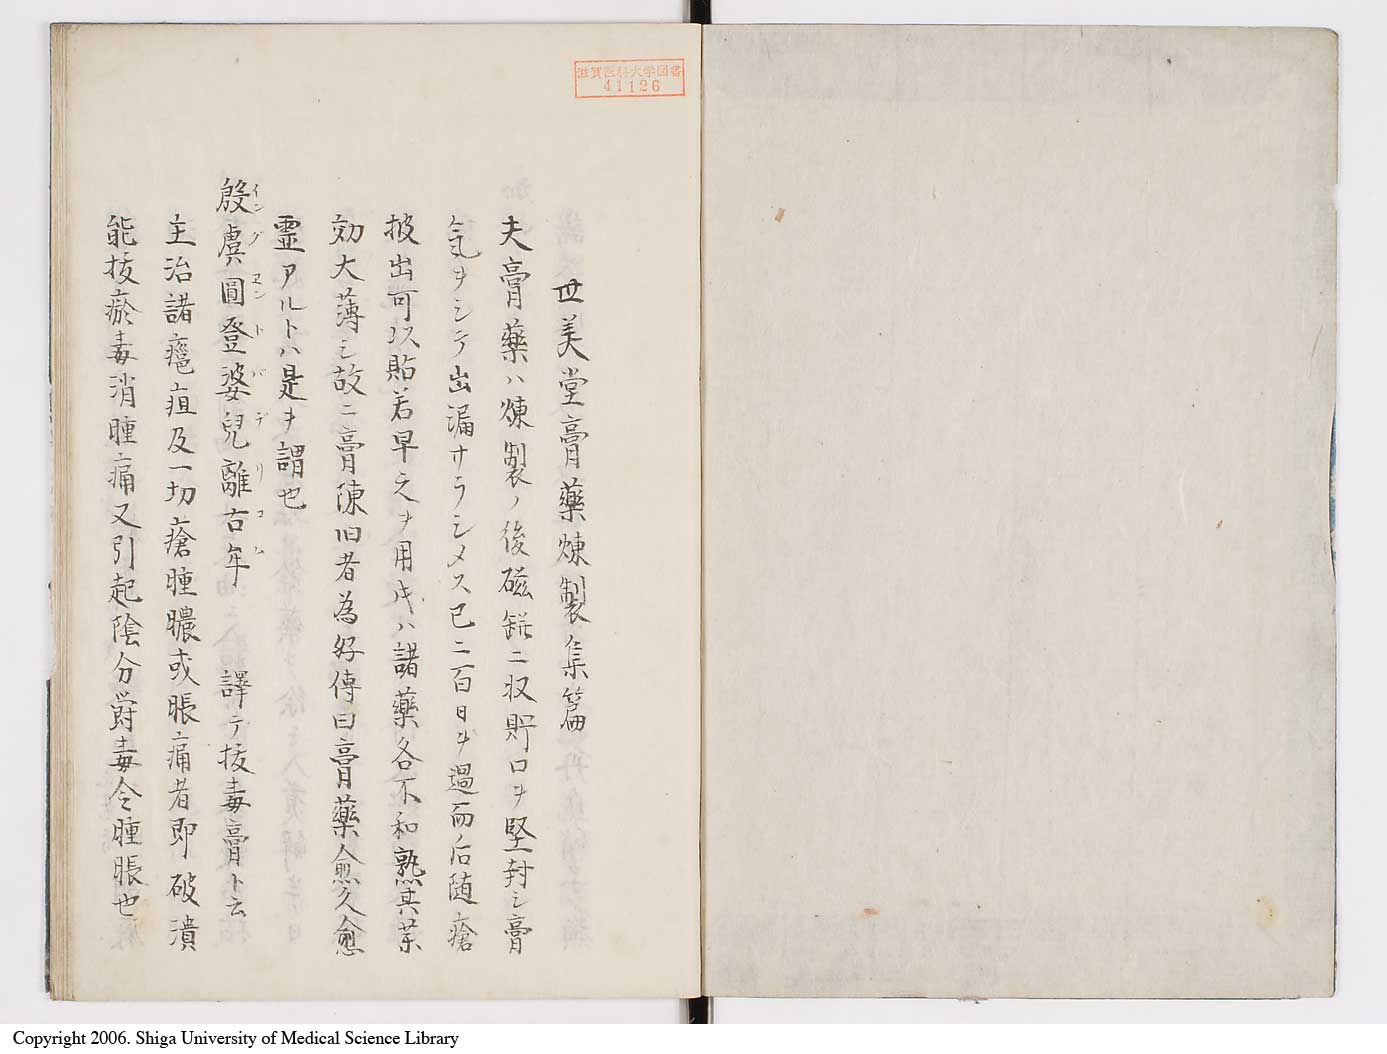 滋賀医科大学図書
41126
世美堂膏藥煉製集篇
夫膏藥ハ煉製ノ後磁缾ニ收貯口ヲ堅封シ膏
気ヲシテ出漏サラシメス已ニ百日ヲ過而后随瘡
披出可以貼若早之ヲ用レハ諸藥各不和熟其薬
効大薄シ故ニ膏陳旧者為好傳曰膏藥愈久愈
霊アルトハ是ヲ謂也
殷虞圓登婆兒離古牟 譯テ抜毒膏ト云
イングヱントバデリコム
主治諸癰疽及一切瘡腫膿或脹痛者即破潰
能抜瘀毒消腫痛又引起陰分欝毒令腫脹也
Copyright 2006. Shiga University of Medical Science Library